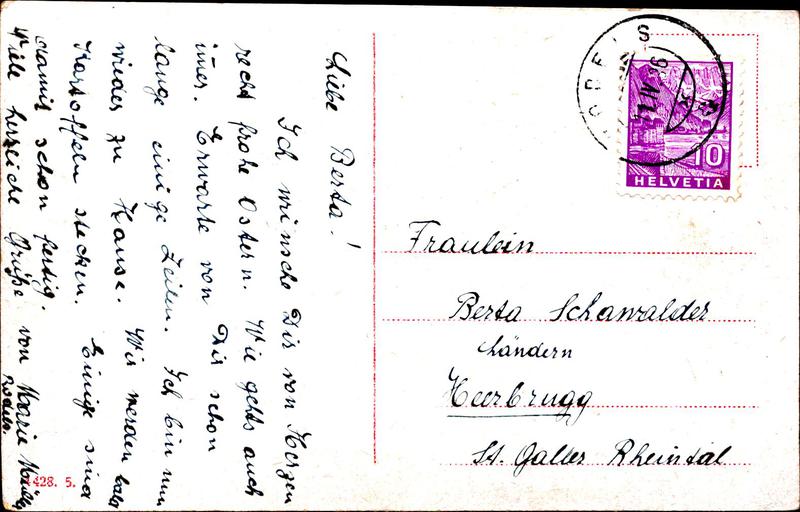 Liebe Berta!
Ich wünsche Dir von Herzen
recht frohe Ostern. Wie gehts auch
imer. Erwarte von Dir schon
lange einige Zeilen. Ich bin nun
wieder zu Hause. Wir werden bald
Kartoffeln stecken. Einige sind
damit schon fertig.
Viele herzliche Grüße von Marie
1428. 5.
HELVETIA
10
Fräulein
Berta Schawalder
Ländern
Heerbrugg
St. Galler Rheintal